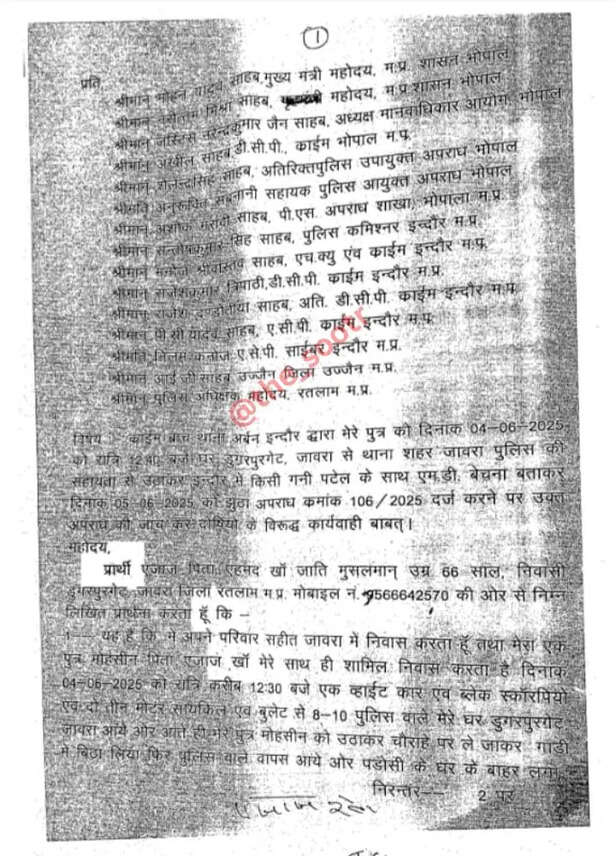 1
प्रति
श्रीमान् मोहन यादव साहब, मुख्य मंत्री महोदय, म.प्र. शासन भोपाल
श्रीमान् नरोत्तम मिश्रा साहब, महोदय, म.प्र शासन भोपाल
श्रीमान् जस्टिस नरेन्द्रकुमार जैन साहब, अध्यक्ष मानवाधिकार आयोग, भोपाल
श्रीमान् अखील साहब, डी.सी.पी., काईम भोपाल म.प्र.
श्रीमान् शैलेन्द्रसिंह साहब, अतिरिक्तपुलिस उपायुक्त अपराध भोपाल
श्रीमति सहायक पुलिस आयुक्त अपराध भोपाल
श्रीमान् अशोक मरावी साहब, पी.एस. अपराध शाखा, भोपाला म.प्र.
श्रीमान् सन्तोषकुमार सिंह साहब, पुलिस कमिश्नर इन्दौर म.प्र.
श्रीमान् मनोज श्रीवास्तव साहब, एच.क्यु एंव काईम इन्दौर म.प्र.
श्रीमान् राजेशकुमार त्रिपाठी,डी.सी.पी. काईम इन्दौर म.प्र.
श्रीमान् राजेश दण्डोतीया साहब, अति. डी.सी.पी. काईम इन्दौर म.प्र.
श्रीमान् पी.सी यादव साहब, ए.सी.पी. काईम इन्दौर म.प्र.
श्रीमति निलम कनोज ए.से.पी. साईबर इन्दौर म.प्र.
श्रीमान् आई.जी.साहब उज्जैन जिला उज्जैन म.प्र.
श्रीमान् पुलिस अधिक्षक महोदय, रतलाम म.प्र.
@the_sootr
विषय :- काईम ब्रांच थाना अर्बन इन्दौर द्वारा मेरे पुत्र को दिनाक 04-06-2025
को रात्रि 12:40 बजे घर डुगरपुरगेट, जावरा से थाना शहर जावरा पुलिस की
सहायता से उठाकर इन्दौर में किसी गनी पटेल के साथ एम.डी. बेचना बताकर
दिनाक 05-06-2025 को झुठा अपराध कमांक 106/2025 दर्ज करने पर उक्त
अपराध की जांच कर दोषियो के विरूद्ध कार्यवाही बाबत्।
महोदय,
प्रार्थी एजाज पिता एहमद खॉ जाति मुसलमान् उम्र 66 साल, निवासी
डुगरपुरगेट, जावरा जिला रतलाम म.प्र. मोबाइल नं. 9566642570 की ओर से निम्न
लिखित प्रार्थना करता हूँ कि –
1— यह है कि मे अपने परिवार सहीत जावरा में निवास करता हूँ तथा मेरा एक
पुत्र मोहसीन पिता एजाज खॉ मेरे साथ ही शामिल निवास करता है दिनाक
04-06-2025 को रात्रि करीब 12:30 बजे एक व्हाईट कार एव ब्लेक स्कॉरपियो
एव दो तीन मोटर सायकिल एव बुलेट से 8-10 पुलिस वाले मेरे घर डुगरपुरगेट
जावरा आये और आते ही मेरे पुत्र मोहसीन को उठाकर चौराहे पर ले जाकर गाडी
मे बिठा लिया फिर पुलिस वाले वापस आये और पडोसी के घर के बाहर लगा
निरन्तर--- 2 पर
एजाज